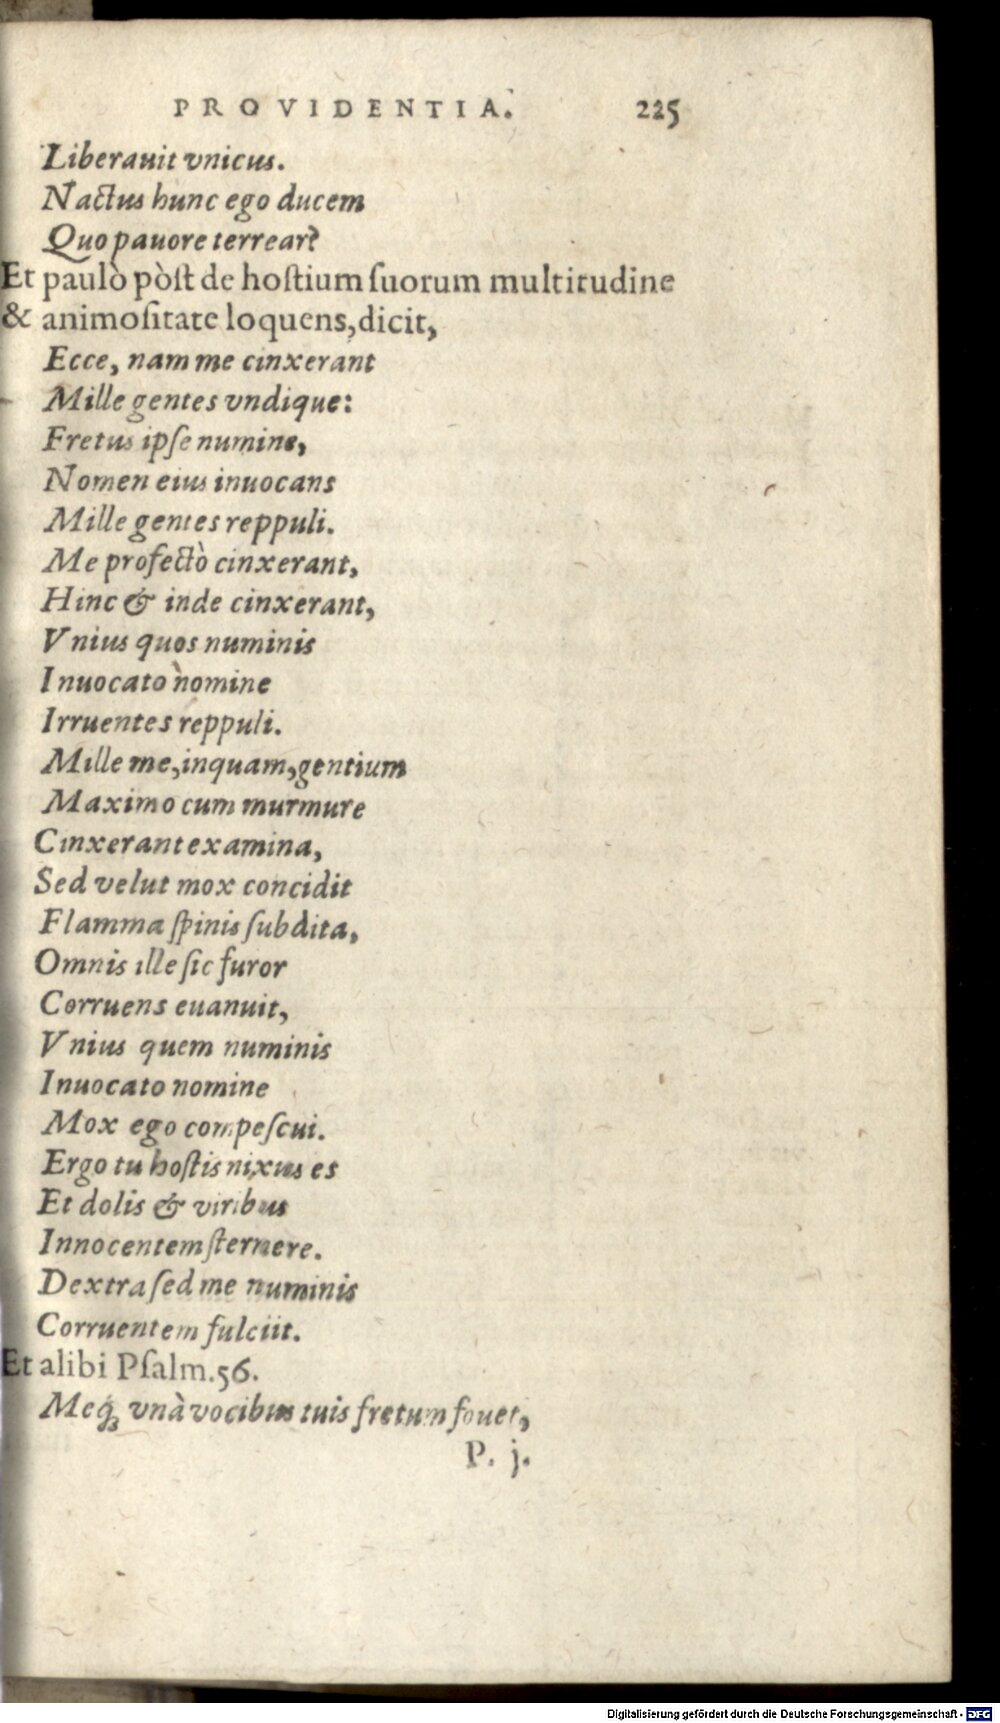 PROVIDENTIA. 225
Liberauit vnicus.
Nactus hunc ego ducem
Quo pauore terrear?
Et paulò pòst de hoſtium ſuorum multitudine
& animoſitate loquens, dicit,
Ecce, nam me cinxerant
Mille gentes vndique:
Fretus ipſe numine,
Nomen eius inuocans
Mille gentes reppuli.
Me profectò cinxerant,
Hinc & inde cinxerant,
Vnius quos numinis
Inuocato nomine
Irruentes reppuli.
Mille me, inquam, gentium
Maximo cum murmure
Cinxerant examina,
Sed velut mox concidit
Flamma ſpinis ſubdita,
Omnis ille ſic furor
Corruens euanuit,
Vnius quem numinis
Inuocato nomine
Mox ego compeſcui.
Ergo tu hoſtis nixus es
Et dolis & viribus
Innocentem ſternere.
Dextra ſed me numinis
Corruentem fulciit.
Et alibi Pſalm. 56.
Meq́; vnà vocibus tuis fretum fouet,
P. j.
Digitalisierung gefördert durch die Deutsche Forschungsgemeinschaft - DFG